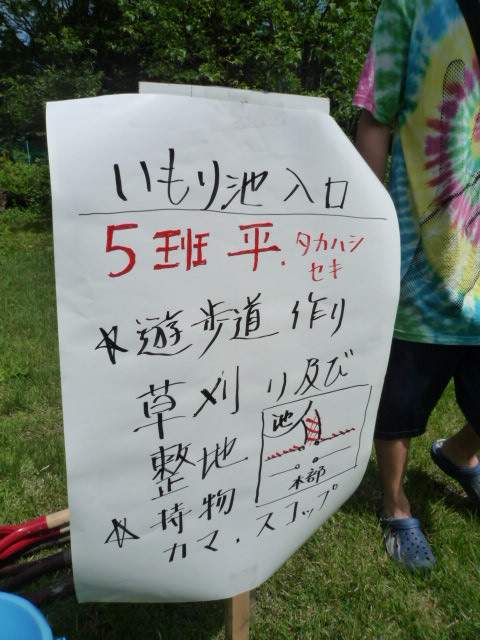 いもり池入口
5班 平. タカハシ
セキ
☆遊歩道作り
草刈り及び
整地
池
本部
☆持物
カマ.スコップ